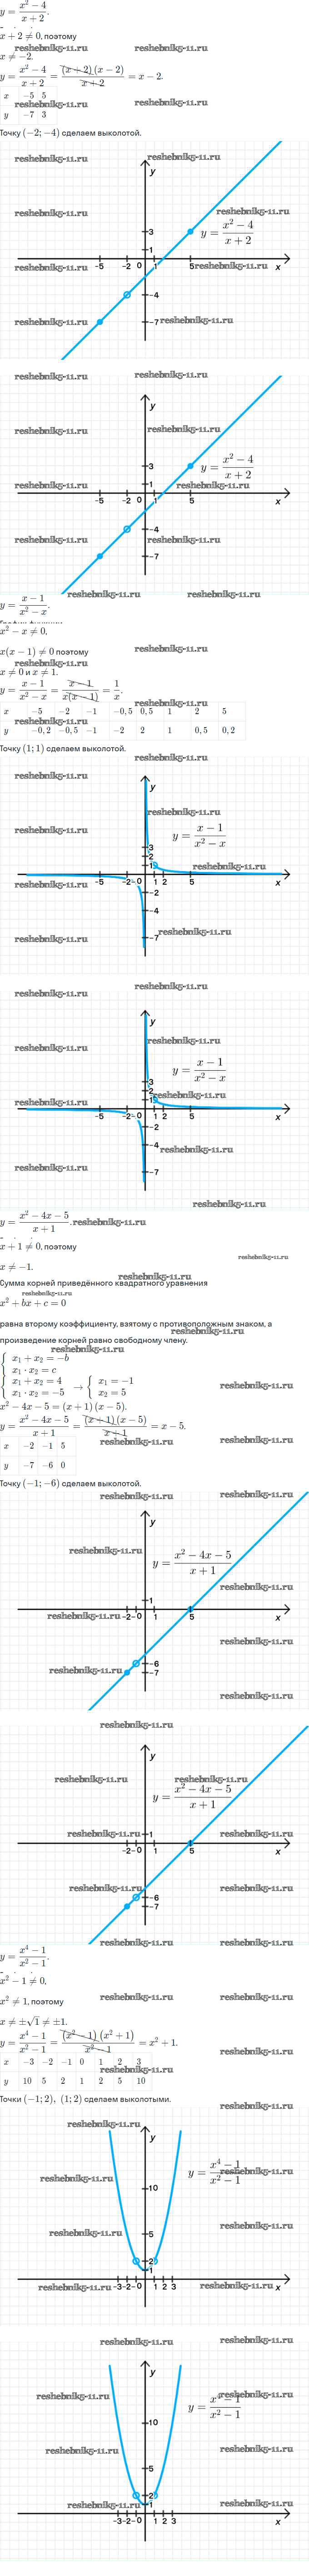 y = \frac{x^2 - 4}{x + 2}.
x + 2 ≠ 0, поэтому
reshebnik5-11.ru reshebnik5-11.ru
x ≠ −2.
y = \frac{x^2 - 4}{x + 2} = \frac{(x + 2)(x − 2)}{x + 2} = x − 2.
x −5 5
reshebnik5-11.ru reshebnik5-11.ru
y −7 3
Точку (−2; −4) сделаем выколотой.
reshebnik5-11.ru reshebnik5-11.ru
y
reshebnik5-11.ru reshebnik5-11.ru
3
y = \frac{x^2 - 4}{x + 2}
1
-5 -2 0 1 5 x
reshebnik5-11.ru reshebnik5-11.ru
-4
reshebnik5-11.ru -7 reshebnik5-11.ru
reshebnik5-11.ru reshebnik5-11.ru
y
reshebnik5-11.ru reshebnik5-11.ru
3
y = \frac{x^2 - 4}{x + 2}
reshebnik5-11.ru 1 reshebnik5-11.ru
-5 -2 0 1 5 x
-4
reshebnik5-11.ru reshebnik5-11.ru
-7
reshebnik5-11.ru reshebnik5-11.ru
y = \frac{x − 1}{x^2 − x}.
x^2 − x ≠ 0,
x(x − 1) ≠ 0 поэтому reshebnik5-11.ru
reshebnik5-11.ru
x ≠ 0 и x ≠ 1.
y = \frac{x − 1}{x^2 − x} = \frac{x − 1}{x(x − 1)} = \frac{1}{x}.
reshebnik5-11.ru
x −5 −2 −1 −0,5 0,5 1 2 5
reshebnik5-11.ru
y −0,2 −0,5 −1 −2 2 1 0,5 0,2
Точку (1; 1) сделаем выколотой.
reshebnik5-11.ru
reshebnik5-11.ru
y
reshebnik5-11.ru
reshebnik5-11.ru y = \frac{x − 1}{x^2 − x}
3
2
1 reshebnik5-11.ru
-5 -2 0 1 2 5 x
reshebnik5-11.ru
-2
-4
reshebnik5-11.ru -7 reshebnik5-11.ru
reshebnik5-11.ru
reshebnik5-11.ru
y
reshebnik5-11.ru reshebnik5-11.ru
y = \frac{x − 1}{x^2 − x}
3
2
reshebnik5-11.ru 1 reshebnik5-11.ru
-5 -2 0 1 2 5 x
-2
-4
reshebnik5-11.ru reshebnik5-11.ru
reshebnik5-11.ru -7
reshebnik5-11.ru
y = \frac{x^2 − 4x − 5}{x + 1}. reshebnik5-11.ru
x + 1 ≠ 0, поэтому
reshebnik5-11.ru
x ≠ −1.
reshebnik5-11.ru
Сумма корней приведённого квадратного уравнения
reshebnik5-11.ru
x^2 + bx + c = 0
равна второму коэффициенту, взятому с противоположным знаком, а
reshebnik5-11.ru
произведение корней равно свободному члену.
reshebnik5-11.ru
{ x_1 + x_2 = −b
x_1 · x_2 = c
{ x_1 + x_2 = 4 → { x_1 = −1
x_1 · x_2 = −5 x_2 = 5
reshebnik5-11.ru
x^2 − 4x − 5 = (x + 1)(x − 5).
y = \frac{x^2 − 4x − 5}{x + 1} = \frac{(x + 1)(x − 5)}{x + 1} = x − 5.
x −2 −1 5 reshebnik5-11.ru reshebnik5-11.ru
y −7 −6 0
Точку (−1; −6) сделаем выколотой.
reshebnik5-11.ru reshebnik5-11.ru
y
reshebnik5-11.ru reshebnik5-11.ru
y = \frac{x^2 − 4x − 5}{x + 1}
reshebnik5-11.ru
1
reshebnik5-11.ru -2 0 1 5 x
reshebnik5-11.ru
reshebnik5-11.ru -6
-7
reshebnik5-11.ru
reshebnik5-11.ru
y
reshebnik5-11.ru reshebnik5-11.ru
y = \frac{x^2 − 4x − 5}{x + 1}
reshebnik5-11.ru 1 reshebnik5-11.ru
-2 0 1 5 x
reshebnik5-11.ru -6 reshebnik5-11.ru
-7
reshebnik5-11.ru reshebnik5-11.ru
y = \frac{x^4 − 1}{x^2 − 1}.
x^2 − 1 ≠ 0,
x^2 ≠ 1, поэтому reshebnik5-11.ru reshebnik5-11.ru
x ≠ ±√1 ≠ ±1.
y = \frac{x^4 − 1}{x^2 − 1} = \frac{(x^2 − 1)(x^2 + 1)}{x^2 − 1} = x^2 + 1.
reshebnik5-11.ru
x −3 −2 −1 0 1 2 3
reshebnik5-11.ru
y 10 5 2 1 2 5 10
Точки (−1; 2), (1; 2) сделаем выколотыми.
reshebnik5-11.ru
reshebnik5-11.ru
y
reshebnik5-11.ru y = \frac{x^4 − 1}{x^2 − 1} reshebnik5-11.ru
10
reshebnik5-11.ru 5 reshebnik5-11.ru
2
1
reshebnik5-11.ru reshebnik5-11.ru x
-3 -2 0 1 2 3
reshebnik5-11.ru reshebnik5-11.ru
y
reshebnik5-11.ru reshebnik5-11.ru
y = \frac{x^4 − 1}{x^2 − 1}
10
reshebnik5-11.ru reshebnik5-11.ru
5
2
reshebnik5-11.ru 1 reshebnik5-11.ru
-3 -2 0 1 2 3 x